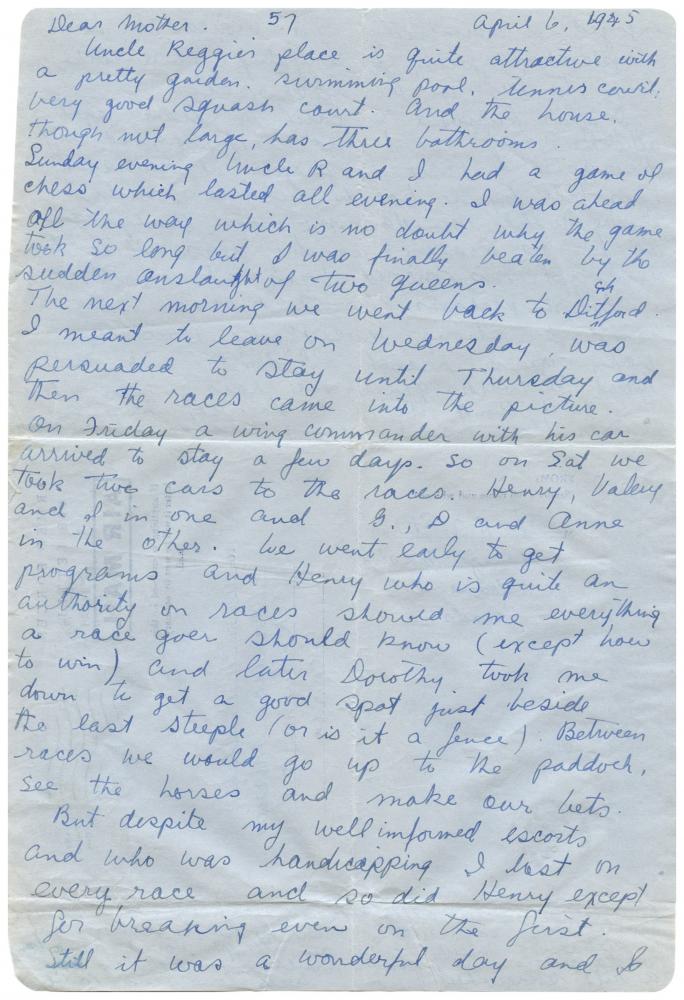 Dear Mother. 57 April 6, 1945
Uncle Reggie's place is quite attractive with
a pretty garden. swimming pool, tennis court,
very good squash court. And the house,
though not large, has three bathrooms.
Sunday evening Uncle R and I had a game of
chess which lasted all evening. I was ahead
all the way which is no doubt why the game
took so long but I was finally beaten by the
sudden onslaught of two queens.
The next morning we went back to Ditford.
I meant to leave on Wednesday, was
persuaded to stay until Thursday and
then the races came into the picture.
On Friday a wing commander with his car
arrived to stay a few days. So on Sat we
took two cars to the races. Henry, Valery
and I in one and G., D and Anne
in the other. We went early to get
programs and Henry who is quite an
authority on races showed me everything
a race goer should know (except how
to win) and later Dorothy took me
down to get a good spot just beside
the last steeple (or is it a fence). Between
races we would go up to the paddock,
see the horses and make our bets.
But despite my well informed escorts
and who was handicapping I lost on
every race and so did Henry except
for breaking even on the first.
Still it was a wonderful day and